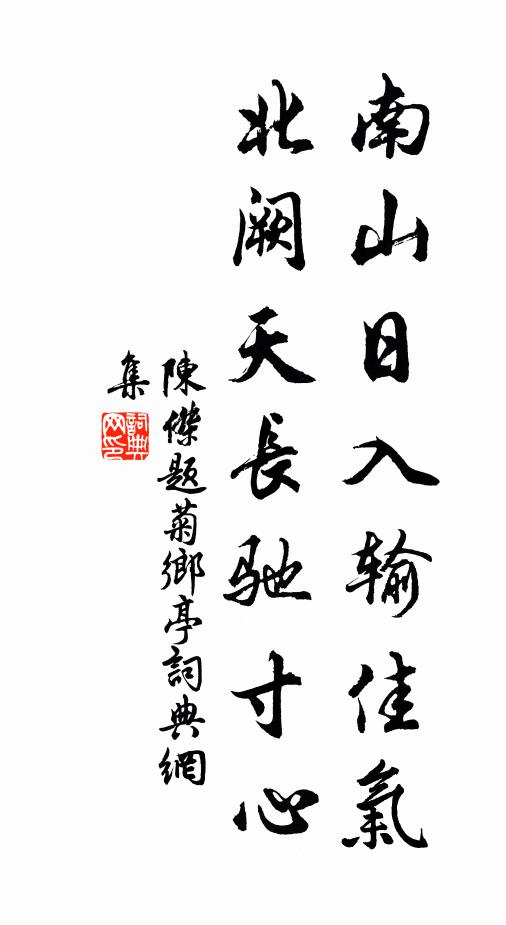 南山日入输佳氣
北阙天長驰寸心
陳傑题菊鄉亭詞典網
集
詞典
网印